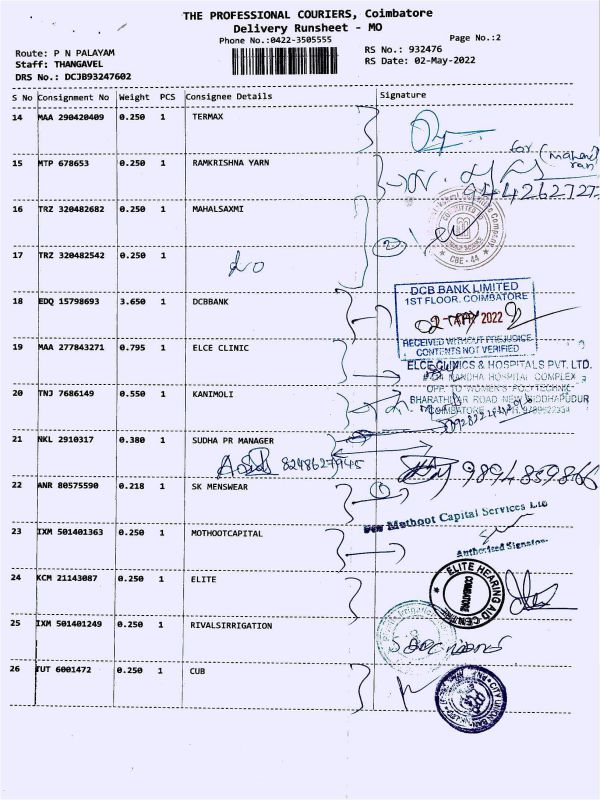 THE PROFESSIONAL COURIERS, Coimbatore
Delivery Runsheet - MO
Phone No.:0422-3505555
Page No.:2
Route: P N PALAYAM
Staff: THANGAVEL
DRS No.: DCJB93247602
RS No.: 932476
RS Date: 02-May-2022
S No Consignment No Weight PCS Consignee Details Signature
14 MAA 290420409 0.250 1 TERMAX
15 MTP 678653 0.250 1 RAMKRISHNA YARN
for (mahend
ran)
16 TRZ 320482682 0.250 1 MAHALSAXMI
CBE - 44
17 TRZ 320482542 0.250 1
2
18 EDQ 15798693 3.650 1 DCBBANK
DCB BANK LIMITED
1ST FLOOR, COIMBATORE
02 MAY 2022
RECEIVED WITHOUT PREJUDICE
CONTENTS NOT VERIFIED
19 MAA 277843271 0.795 1 ELCE CLINIC
ELCE CLINICS & HOSPITALS PVT. LTD.
NANDHA HOSPITAL COMPLEX
20 TNJ 7686149 0.550 1 KANIMOLI
BHARATHIAR ROAD NEW SIDDHAPUDUR
COIMBATORE
21 NKL 2910317 0.380 1 SUDHA PR MANAGER
8248627945
9894859866
22 ANR 80575590 0.218 1 SK MENSWEAR
1
For Muthoot Capital Services Ltd
23 IXM 501401363 0.250 1 MOTHOOTCAPITAL
Authorised Signatory
24 KCM 21143087 0.250 1 ELITE
ELITE HEARING AID CENTRE
COIMBATORE
25 IXM 501401249 0.250 1 RIVALSIRRIGATION
26 TUT 6001472 0.250 1 CUB
CITY UNION BANK